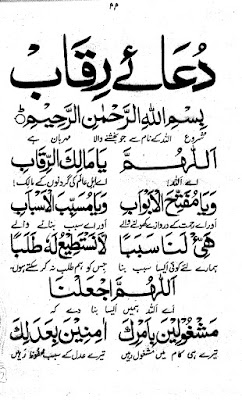 دُعَائے رِقَاب
بِسْمِ اللهِ الرَّحْمٰنِ الرَّحِيْمِ
شروع اللہ کے نام سے جو بخشنے والا مہربان ہے
اَللّٰهُمَّ يَا مَالِكَ الرِّقَابِ
اے اللہ! اے اہل عالم کی گردنوں کے مالک!
وَيَا مُفَتِّحَ الْاَبْوَابِ وَيَا مُسَبِّبَ الْاَسْبَابِ
اور اے رحمت کے دروازے کھولنے والے اور اے سبب بنانے والے
هَيِّئْ لَنَا سَبَبًا لَا نَسْتَطِيْعُ لَهٗ طَلَبًا
ہمارے لئے کوئی ایسا سبب بنا جس کو ہم طلب نہ کر سکتے ہوں
اَللّٰهُمَّ اجْعَلْنَا
اے اللہ ہمیں ایسا بنا دے کہ
مَشْغُوْلِيْنَ بِاَمْرِكَ اٰمِنِيْنَ بِعَدْلِكَ
تیرے ہی کام میں مشغول رہیں تیرے عدل کے سبب محفوظ رہیں